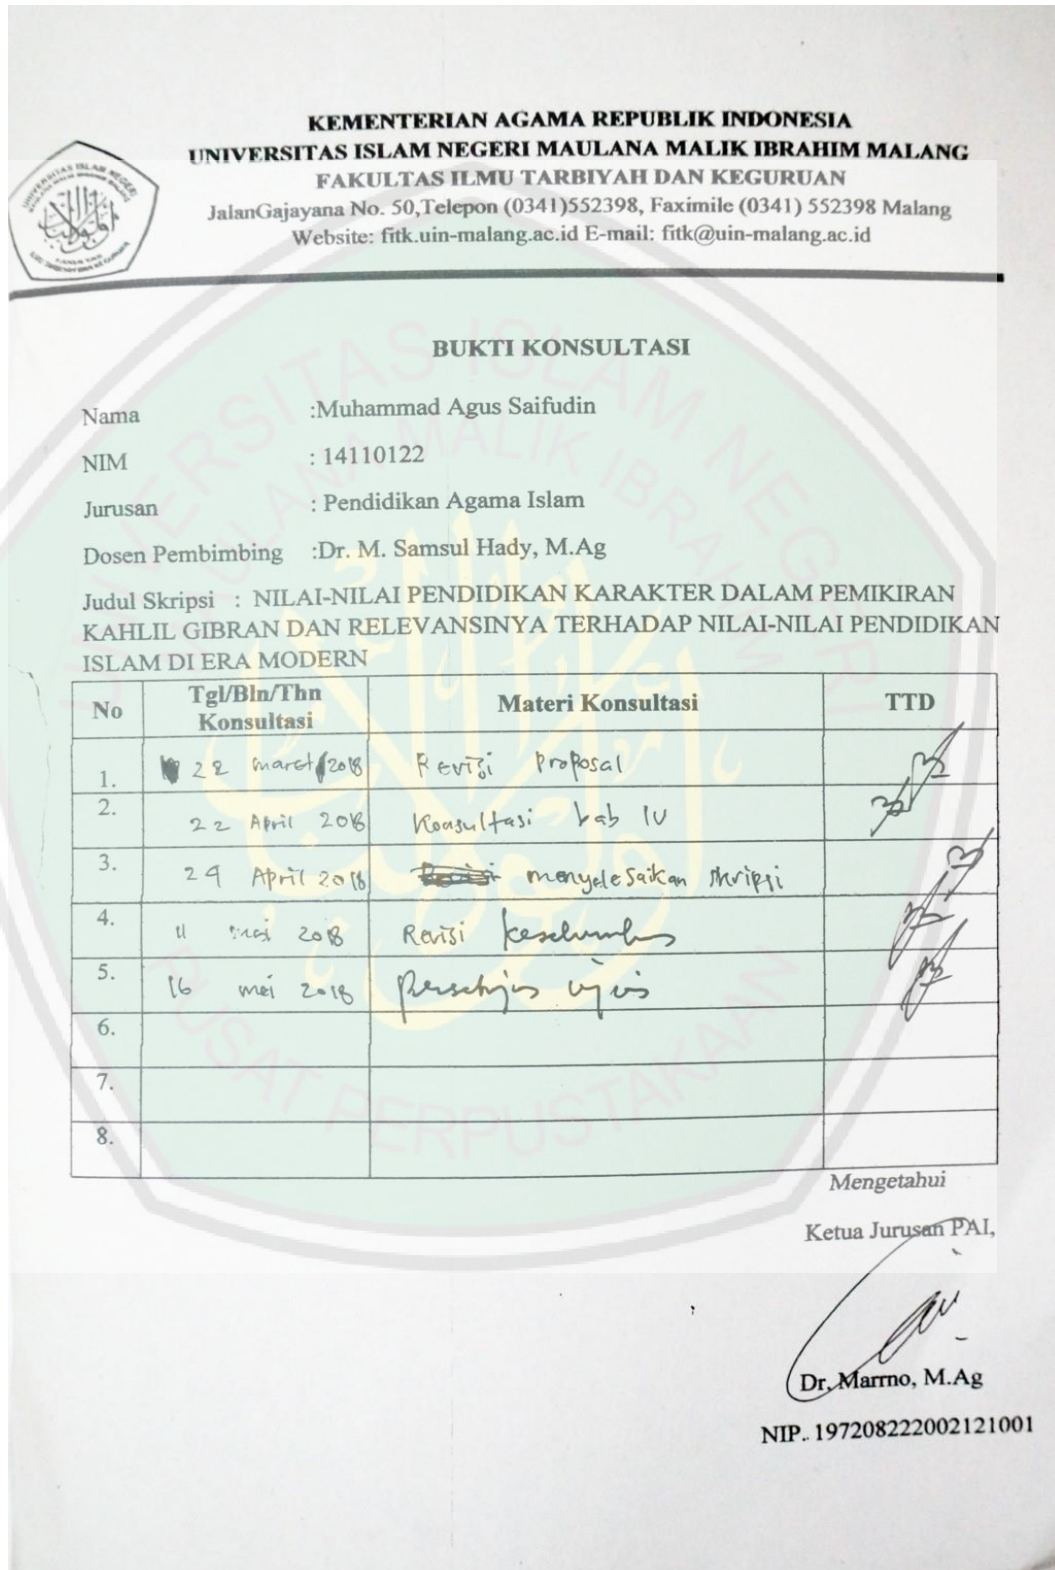 KEMENTERIAN AGAMA REPUBLIK INDONESIA
UNIVERSITAS ISLAM NEGERI MAULANA MALIK IBRAHIM MALANG
FAKULTAS ILMU TARBIYAH DAN KEGURUAN
JalanGajayana No. 50,Telepon (0341)552398, Faximile (0341) 552398 Malang
Website: fitk.uin-malang.ac.id E-mail: fitk@uin-malang.ac.id
BUKTI KONSULTASI
Nama :Muhammad Agus Saifudin
NIM : 14110122
Jurusan : Pendidikan Agama Islam
Dosen Pembimbing :Dr. M. Samsul Hady, M.Ag
Judul Skripsi : NILAI-NILAI PENDIDIKAN KARAKTER DALAM PEMIKIRAN
KAHLIL GIBRAN DAN RELEVANSINYA TERHADAP NILAI-NILAI PENDIDIKAN
ISLAM DI ERA MODERN
No Tgl/Bln/Thn Konsultasi Materi Konsultasi TTD
1. 22 maret 2018 Revisi Proposal
2. 22 April 2018 Konsultasi bab IV
3. April 2018 menyelesaikan skripsi
4. 11 mei 2018 Revisi
5. 16 mei 2018
6.
7.
8.
Mengetahui
Ketua Jurusan PAI,
Dr. Marrno, M.Ag
NIP. 197208222002121001
UNIVERSITAS ISLAM NEGERI
MAULANA MALIK IBRAHIM
PUSAT PERPUSTAKAAN